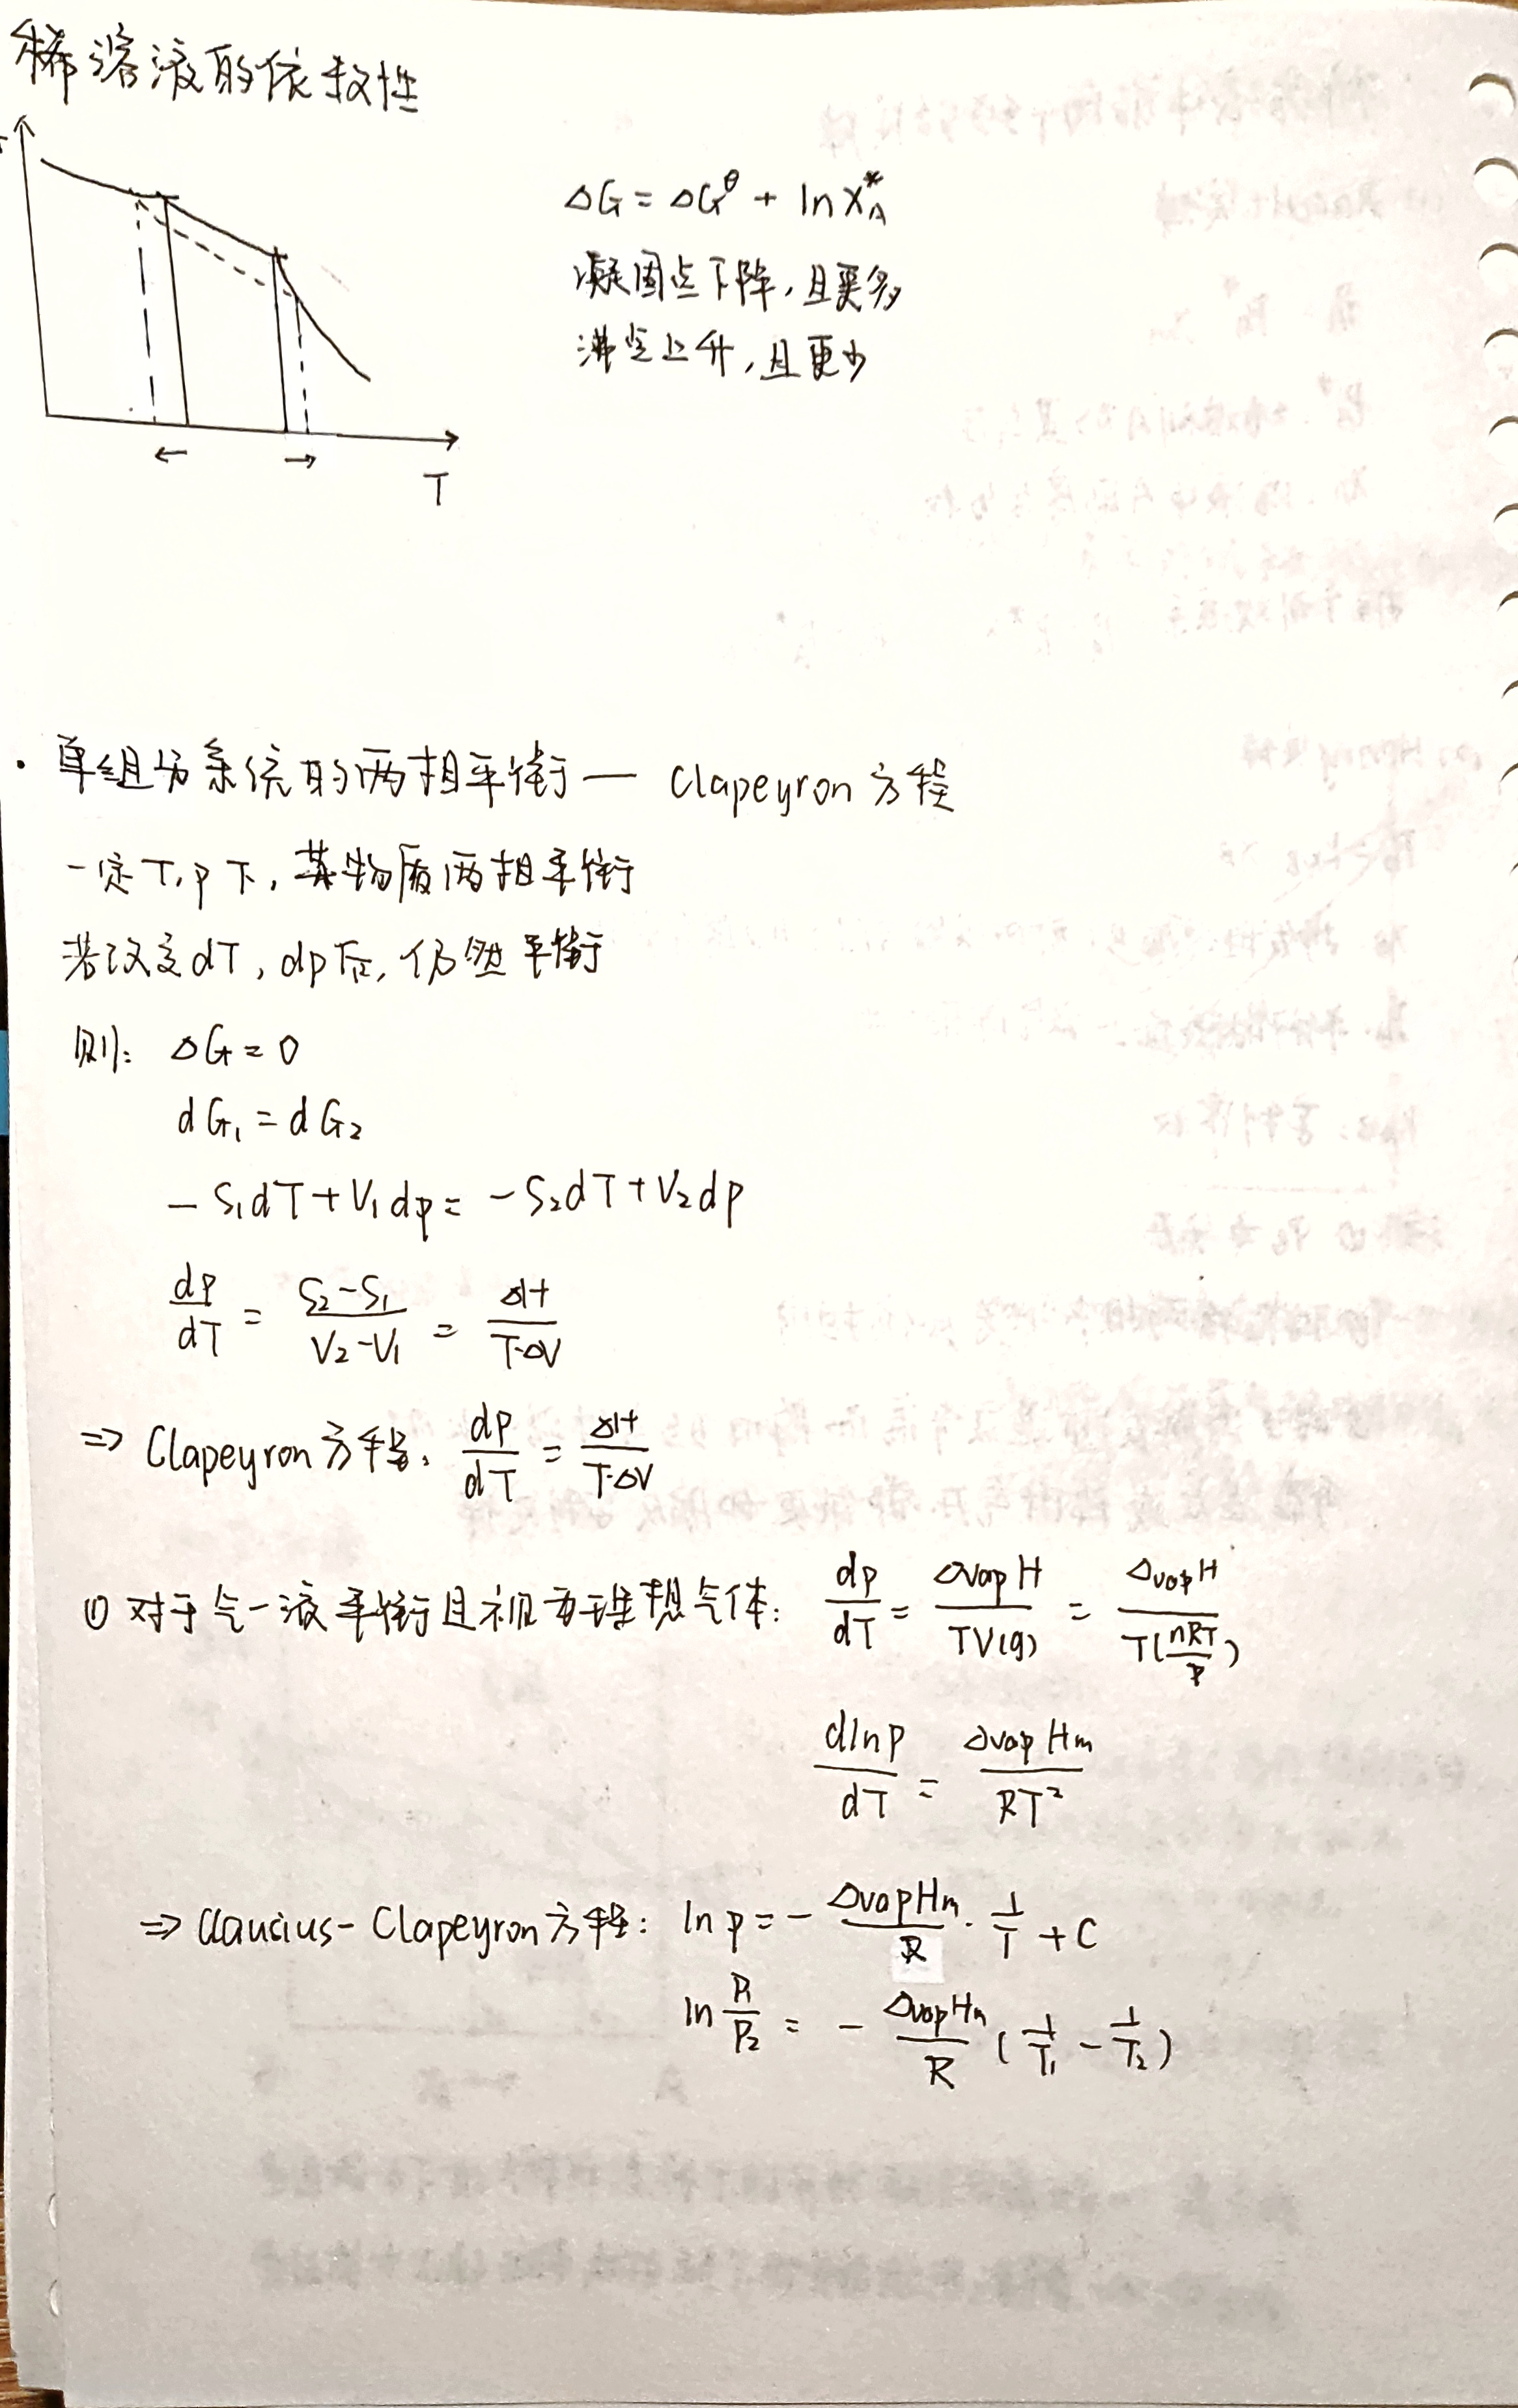 稀溶液的依数性
ΔG = ΔG^θ + ln X_A^*
凝固点下降，且更多
沸点上升，且更少
← →
T
· 单组分系统的两相平衡 — Clapeyron 方程
一定 T, p 下，某物质两相平衡
若改变 dT, dp 后，仍然平衡
则: ΔG = 0
dG₁ = dG₂
-S₁dT + V₁dp = -S₂dT + V₂dp
dp/dT = (S₂-S₁)/(V₂-V₁) = ΔH/(T·ΔV)
⇒ Clapeyron 方程: dp/dT = ΔH/(T·ΔV)
① 对于气-液平衡且视为理想气体: dp/dT = ΔvapH/(TV(g)) = ΔvapH/(T(nRT/p))
dlnp/dT = ΔvapHm/(RT²)
⇒ Claucius - Clapeyron 方程: ln p = - ΔvapHm/R · 1/T + C
ln P₁/P₂ = - ΔvapHm/R (1/T₁ - 1/T₂)